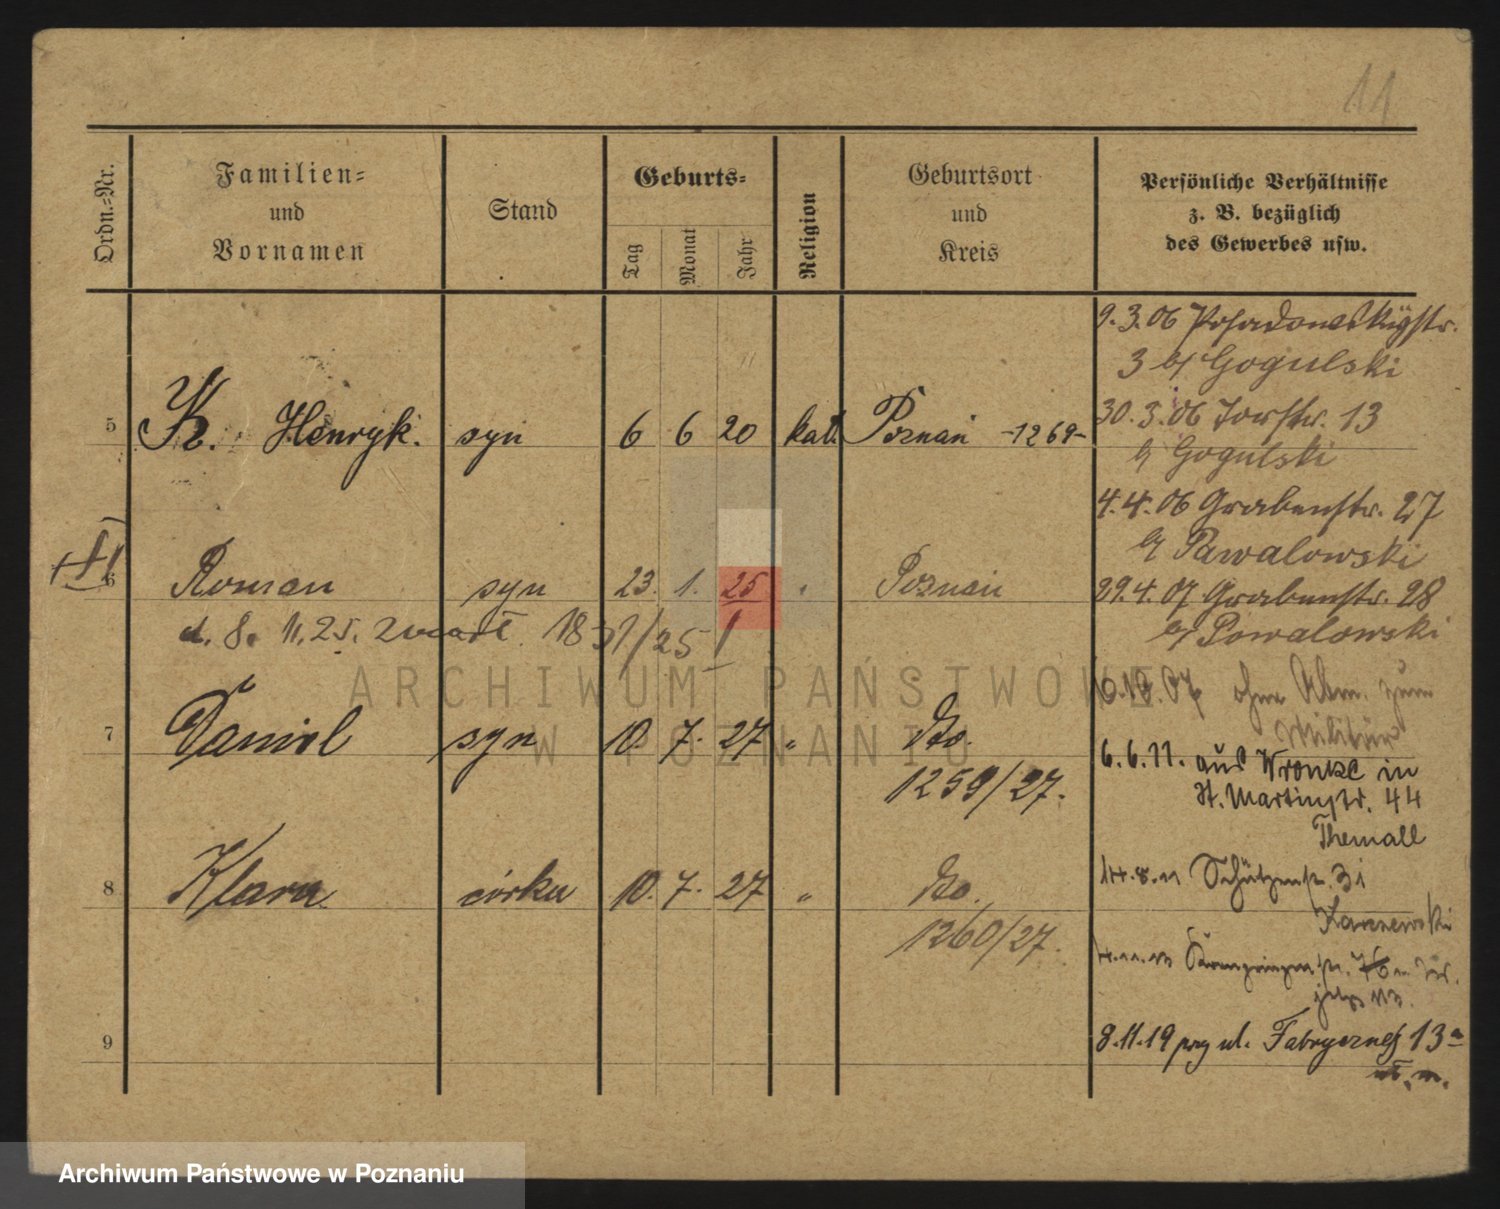 11
Ordn.-Nr.
Familien-
und
Vornamen
Stand
Geburts-
Tag
Monat
Jahr
Religion
Geburtsort
und
Kreis
Persönliche Verhältnisse
z. B. bezüglich
des Gewerbes usw.
5 K. Henryk. syn 6 6 20 kat. Poznań -1269-
6 Roman syn 23. 1. 25 " Poznań
d. 8. 11. 25. 1831/25
7 Daniel syn 10. 7. 27 " dto.
1259/27.
8 Klara córka 10. 7. 27 " dto.
1260/27.
9
9.3.06 Posadowskystr.
3 b/ Gogulski
30.3.06 Torstr. 13
b/ Gogulski
4.4.06 Grabenstr. 27
b/ Pawalowski
29.4.07 Grabenstr. 28
b/ Powalowski
ohne Abm. zum
Militär
6.6.11. aus Wronke in
St. Martinstr. 44
Themall
14.8.11 Schützenstr. 31
Karzewski
4.11.13 Kronprinzenstr.
8.11.19 przy ul. Fabrycznej 13a
ARCHIWUM PAŃSTWOWE
W POZNANIU
Archiwum Państwowe w Poznaniu